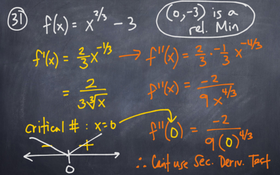 31 f(x) = x^{2/3} - 3
(0,-3) is a rel. Min
f'(x) = 2/3 x^{-1/3} → f''(x) = 2/3 · -1/3 x^{-4/3}
= 2 / 3∛x
f''(x) = -2 / 9 x^{4/3}
critical # : x=0
f''(0) = -2 / 9(0)^{4/3}
- +
0
∴ Can't use Sec. Deriv. Test